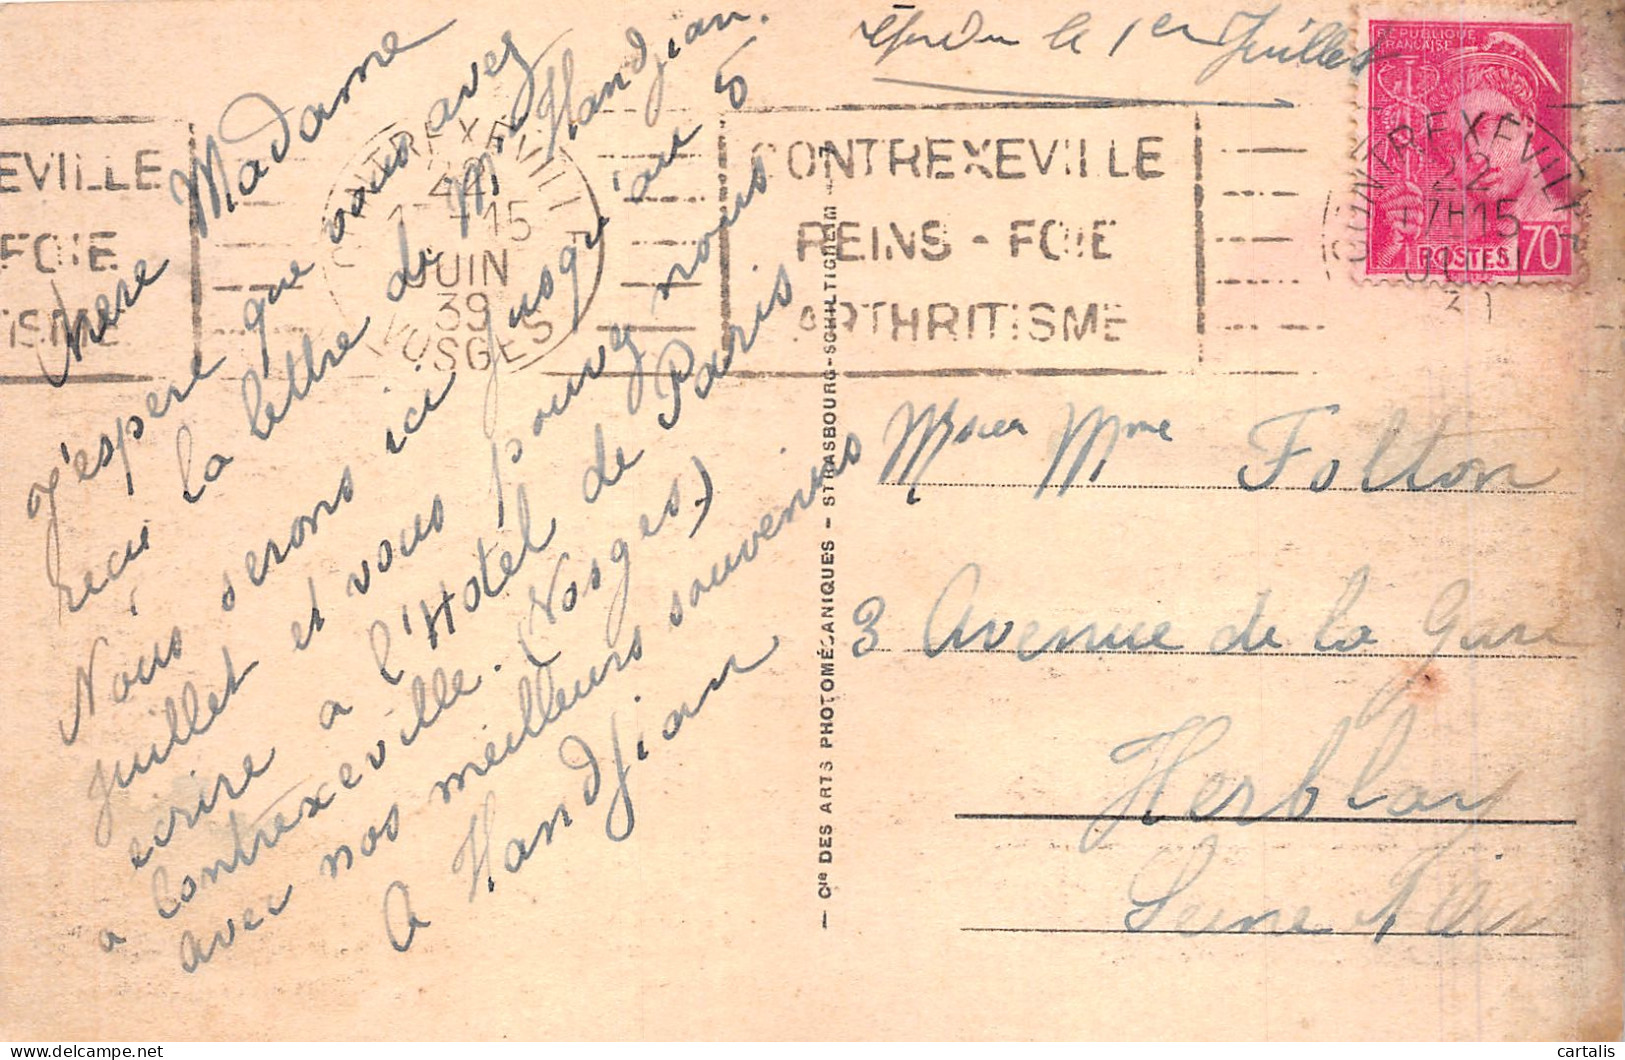 Chere Madame
J'espere que vous avez
recu la lettre de Mr Handjian.
Nous serons ici jusqu'au 5
juillet et vous pouvez nous
ecrire a l'Hotel de Paris
a Contrexeville. (Vosges)
avec nos meilleurs souvenirs
A Handjian
le 1er Juillet
RÉPUBLIQUE
FRANÇAISE
POSTES 70c
CONTREXEVILLE
22
17H15
JUIN
39
VOSGES
CONTREXEVILLE
REINS - FOIE
ARTHRITISME
EVILLE
FOIE
TISME
CONTREXEVILLE
22
17H15
JUIN
39
Cie DES ARTS PHOTOMÉCANIQUES - STRASBOURG-SCHILTIGHEIM
Mme Folton
3 Avenue de la Gare
Herblay
Seine
cartalis
delcampe.net